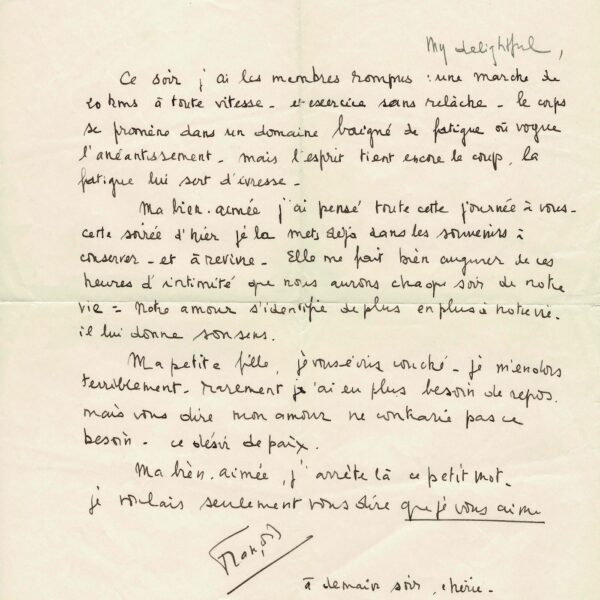 My delightful,
Ce soir j'ai les membres rompus : une marche de
20 kms à toute vitesse - et exercice sans relâche - le corps
se promène dans un domaine baigné de fatigue où vogue
l'anéantissement - mais l'esprit tient encore le coup, la
fatigue lui sert d'ivresse -
Ma bien-aimée j'ai pensé toute cette journée à vous -
cette soirée d'hier je la mets déjà dans les souvenirs à
conserver - et à revivre - Elle me fait bien augurer de ces
heures d'intimité que nous aurons chaque soir de notre
vie = Notre amour s'identifie de plus en plus à notre vie -
il lui donne son sens.
Ma petite fille, je vous écris couché - je m'endors
terriblement - rarement j'ai eu plus besoin de repos.
mais vous dire mon amour ne contrarie pas ce
besoin - ce désir de paix.
Ma bien-aimée, j'arrête là ce petit mot -
je voulais seulement vous dire que je vous aime
François
à demain soir, chérie -